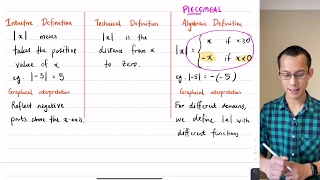 PIECEMEAL
Intuitive Definition
|x| means
takes the positive
value of x
eg. |-5| = 5
Graphical interpretation
Reflect negative
parts above the x-axis.
Technical Definition
|x| is the
distance from x
to zero.
Algebraic Definition
|x| = { x if x≥0
-x if x<0
eg. |-5| = -(-5)
Graphical interpretation
For different domains,
we define |x| with
different functions